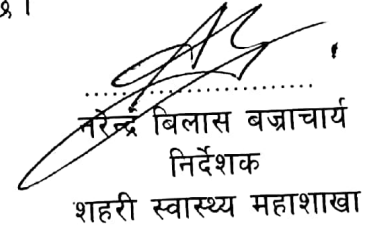 छ ।
नरेन्द्र बिलास बज्राचार्य
निर्देशक
शहरी स्वास्थ्य महाशाखा